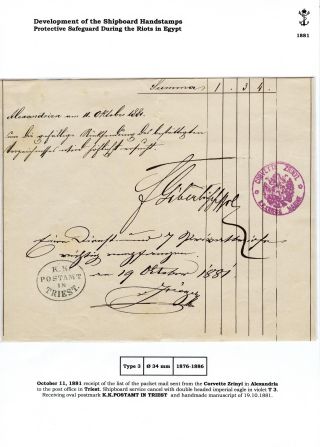 Development of the Shipboard Handstamps
Protective Safeguard During the Riots in Egypt
1881
Summa 1. 3 4.
Alexandrien am 11. Oktober 1881.
um die gefällige Rücksendung des beigefügten
wird höflichst ersucht.
CORVETTE ZRINYI
Eine Dienst und 7
richtig empfangen
am 19 Oktober 1881
K.K.
POSTAMT
IN
TRIEST.
Type 3 Ø 34 mm 1876-1886
October 11, 1881 receipt of the list of the packet mail sent from the Corvette Zrinyi in Alexandria
to the post office in Triest. Shipboard service cancel with double headed imperial eagle in violet T 3.
Receiving oval postmark K.K.POSTAMT IN TRIEST and handmade manuscript of 19.10.1881.